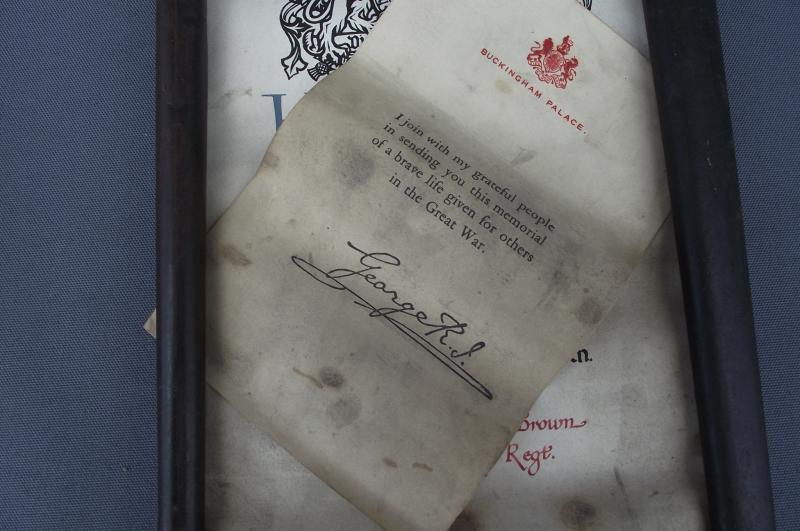 BUCKINGHAM PALACE.
I join with my grateful people
in sending you this memorial
of a brave life given for others
in the Great War.
George R.I.
n.
Brown
Regt.